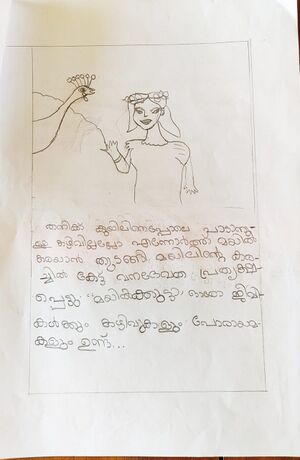 തനിക്ക് കുയിലിനെപ്പോലെ പാടാനു-
ള്ള കഴിവില്ലല്ലോ എന്നോർത്ത് മയിൽ
കരയാൻ തുടങ്ങി മയിലിന്റെ കര-
ച്ചിൽ കേട്ട വനദേവത പ്രത്യക്ഷ-
പ്പെട്ടു "മയിൽക്കുട്ടാ, ഓരോ ജീവി-
കൾക്കും കഴിവുകളും പോരായ്മ-
കളും ഉണ്ട്...